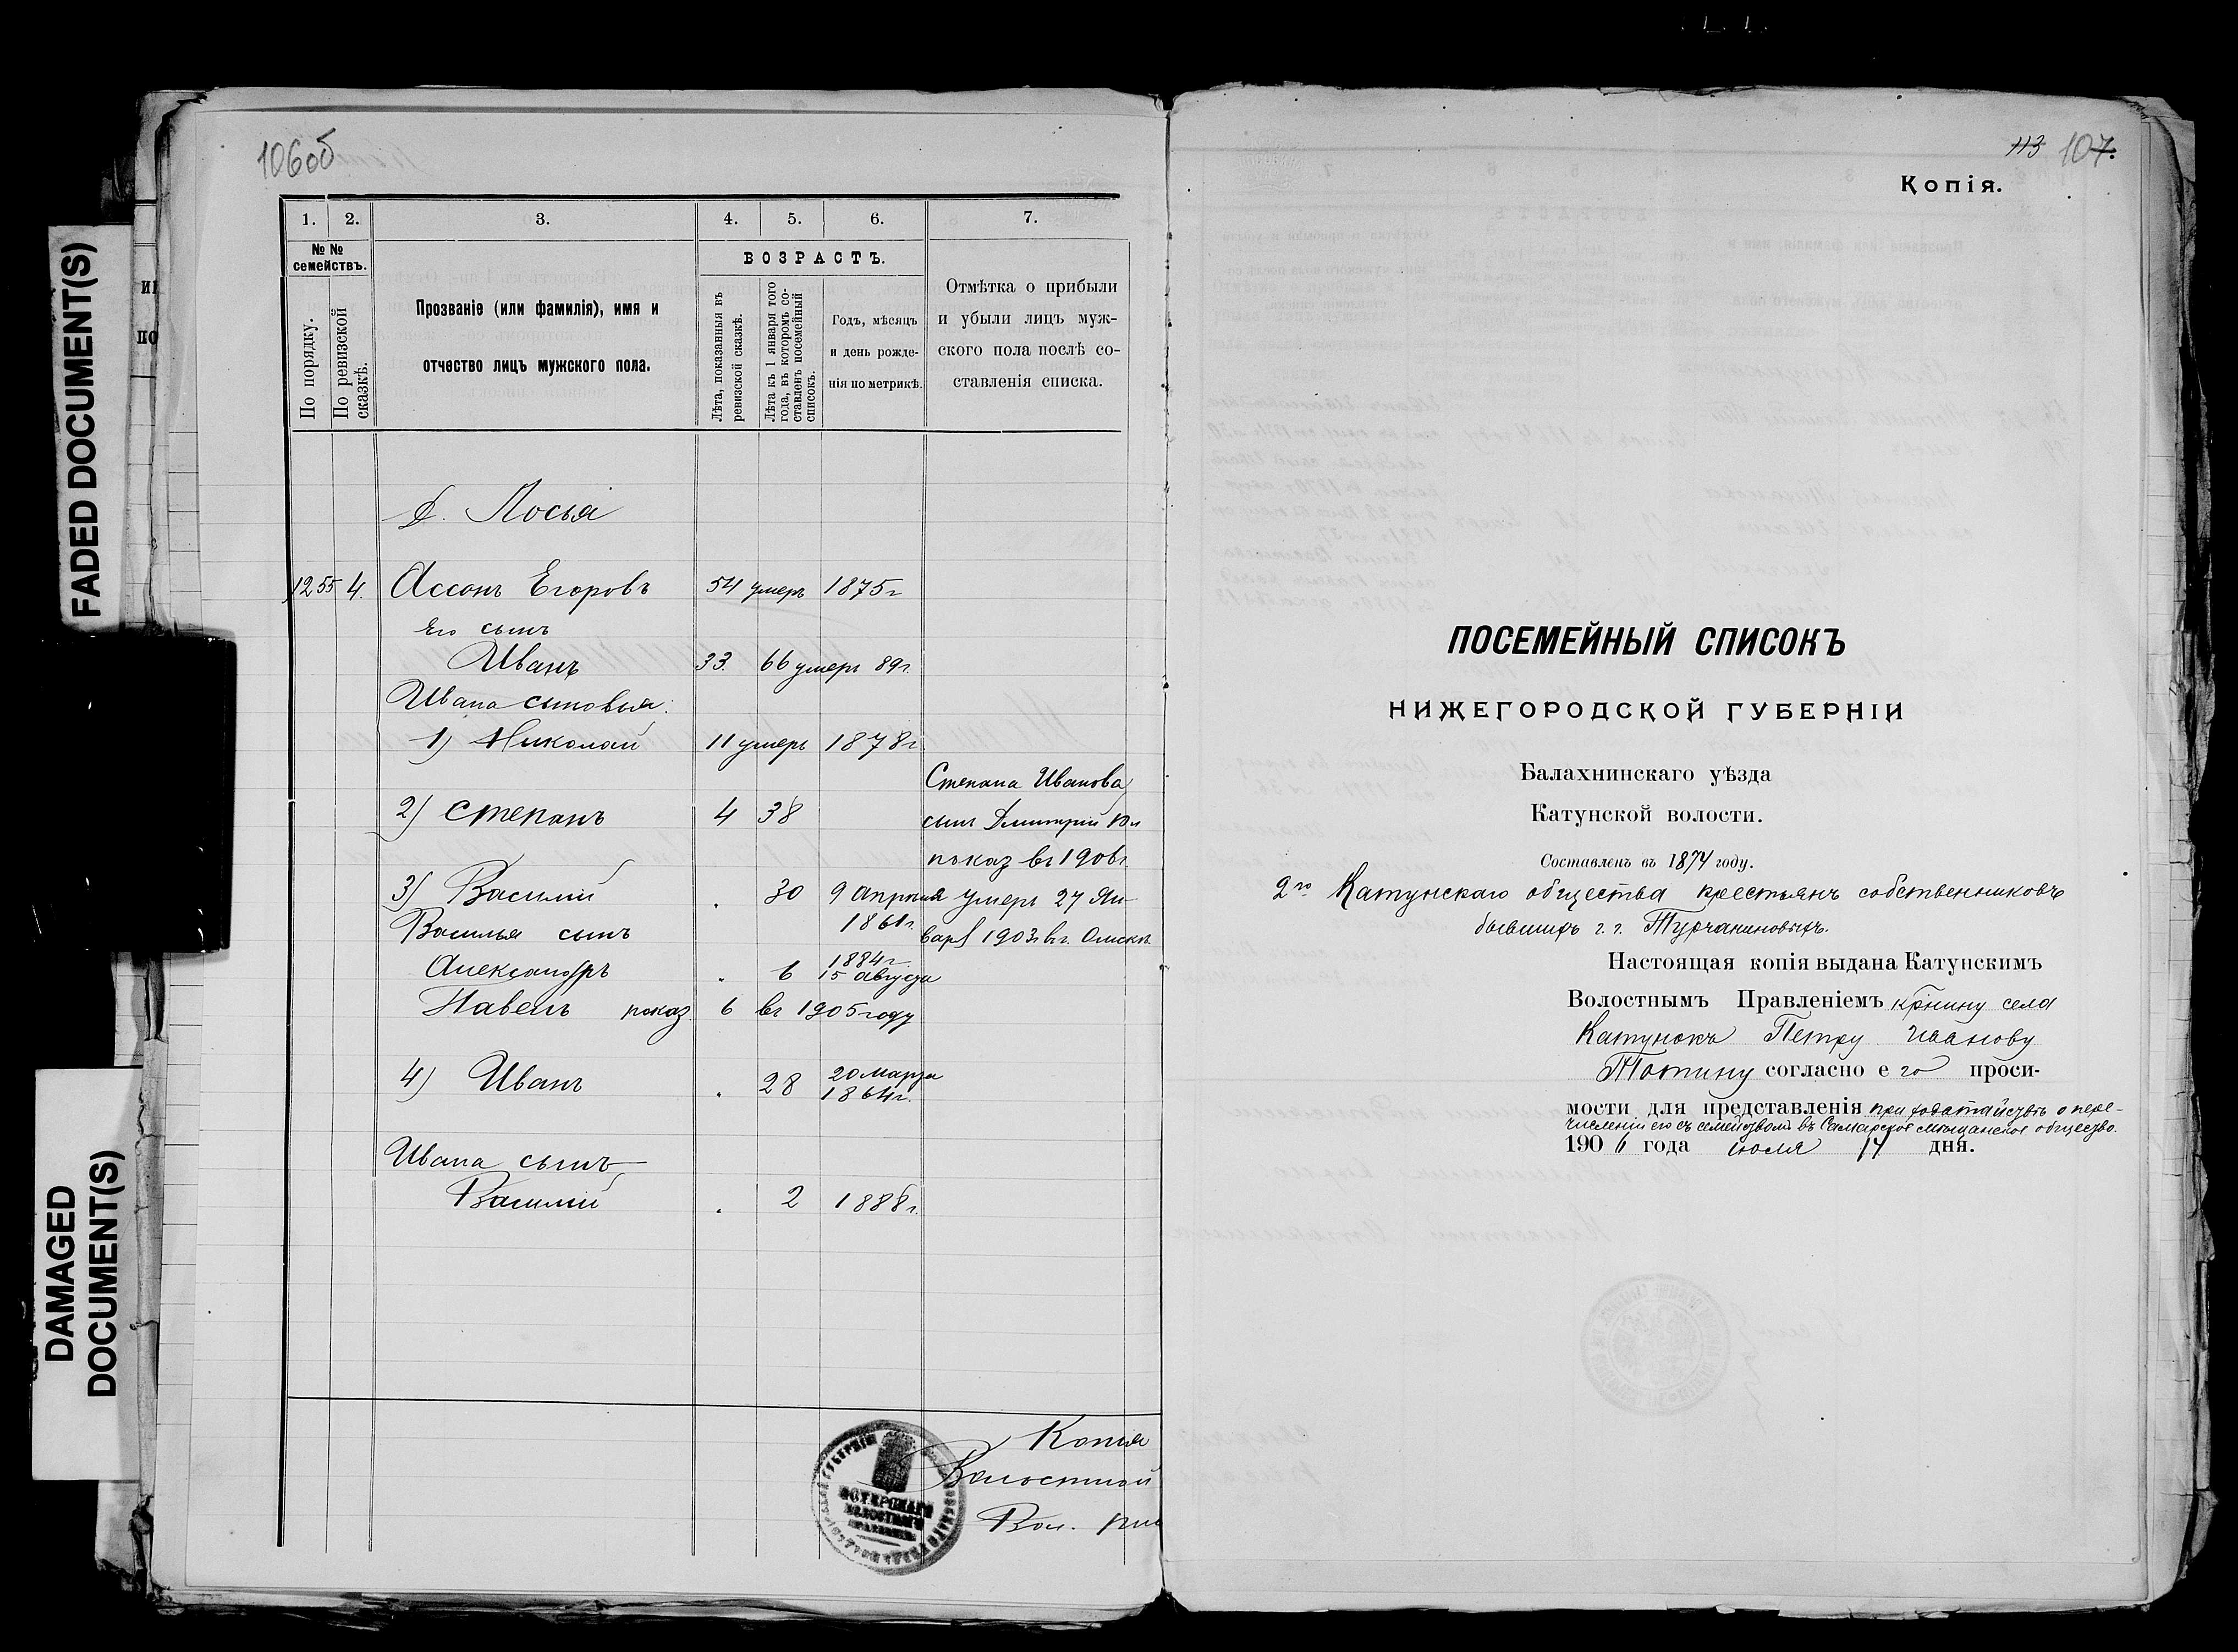 FADED DOCUMENT(S)
DAMAGED
DOCUMENT(S)
106об
1. 2. 3. 4. 5. 6. 7.
№ №
семействъ.
По порядку.
По ревизской
сказкѣ.
Прозваніе (или фамилія), имя и
отчество лицъ мужского пола.
ВОЗРАСТЪ.
Лѣта, показанныя въ
ревизской сказкѣ.
Лѣта къ 1 января того
года, въ которомъ со-
ставленъ посемейный
списокъ.
Годъ, мѣсяцъ
и день рожде-
нія по метрикѣ.
Отмѣтка о прибыли
и убыли лицъ муж-
ского пола послѣ со-
ставленія списка.
д. Лосья
1255 4. Ассонъ Егоровъ 54 умеръ 1875г
Его сынъ
Иванъ 33. 66 умеръ 89г.
Ивана сыновья:
1) Николай 11 умеръ 1878г
Степана Иванова
2) Степанъ 4 38 сынъ Дмитрий 10л
показ въ 1906г.
3) Василий 30 9 апреля умеръ 27 Ян-
1861г.
Василья сынъ варя 1903г въ г. Омскѣ
Александръ 6 1884г.
15 августа
Павелъ показ. 6 въ 1905 году
4) Иванъ 28 20 марта
1864г.
Ивана сынъ
Василий 2 1888г.
Копия
Волостной
Вол.
ВОЛОСТНОГО
113 107.
Копія.
ПОСЕМЕЙНЫЙ СПИСОКЪ
НИЖЕГОРОДСКОЙ ГУБЕРНІИ
Балахнинскаго уѣзда
Катунской волости.
Составленъ въ 1874 году.
2го Катунскаго общества крестьянъ собственниковъ
бывшихъ г. г. Турчаниновыхъ.
Настоящая копія выдана Катунскимъ
Волостнымъ Правленіемъ кр̃нину села
Катунокъ Петру Иванову
Тотину согласно его проси-
мости для представленія при ходатайствѣ о пере-
численіи его съ семействомъ въ Самарское мѣщанское общество.
1906 года июля 14 дня.